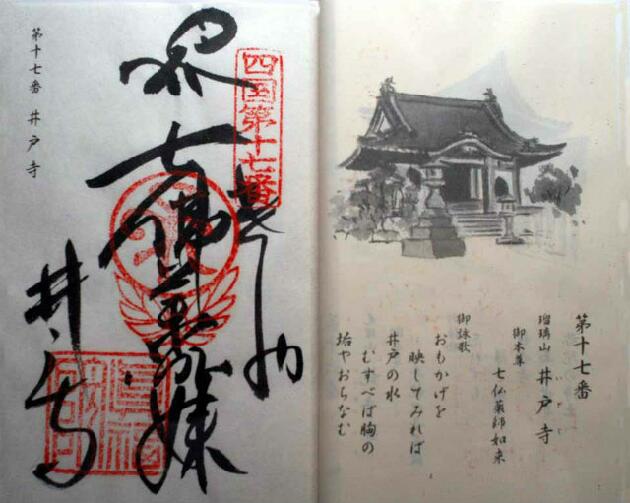 第十七番
瑠璃山 井戸寺
御本尊
七仏薬師如来
御詠歌
おもかげを
映してみれば
井戸の水
むすべば胸の
垢やおちなむ
四国第十七番
七佛薬師
井戸寺
第十七番 井戸寺